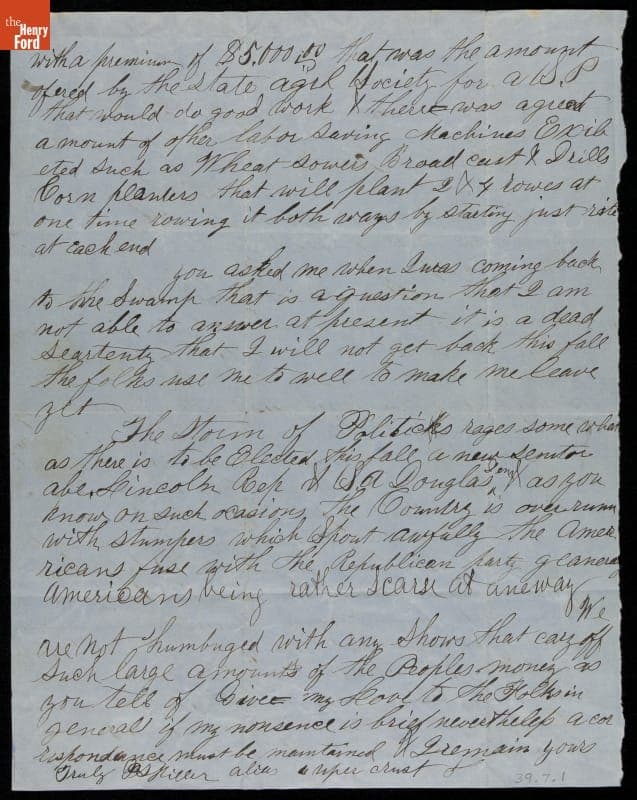 the
Henry
Ford
with a premium of $5.000.00 that was the amount
ofered by the State agrl Society for a S.P
that would do good work & there was agreat
amount of other labor saving Machines Exib
eted such as Wheat sowers Broad cast & Drills
Corn planters that will plant 2 & 4 rowes at
one time rowing it both ways by starting just rite
at each end
you asked me when I was coming back
to the Swamp that is a question that I am
not able to answer at present it is a dead
seartenty that I will not get back this fall
the folks use me to well to make me leave
yet
The Storm of Politicks rages some what
as there is to be Elected this fall a new senitor
abe Lincoln Rep & S A Douglas Dem & as you
know on such ocasions the Country is over runn
with stumpers which spout awfully the Amer
ricans fuse with the Republican party generaly
Americans being rather scarse at aneway
We
are not humbuged with any Shows that cary off
such large amounts of the Peoples money as
you tell of Give my Love to the Folks in
generall if my nonsence is brief nevertheless a cor
respondance must be maintained & I remain yours
Truly Miller alias uper crust
39.7.1